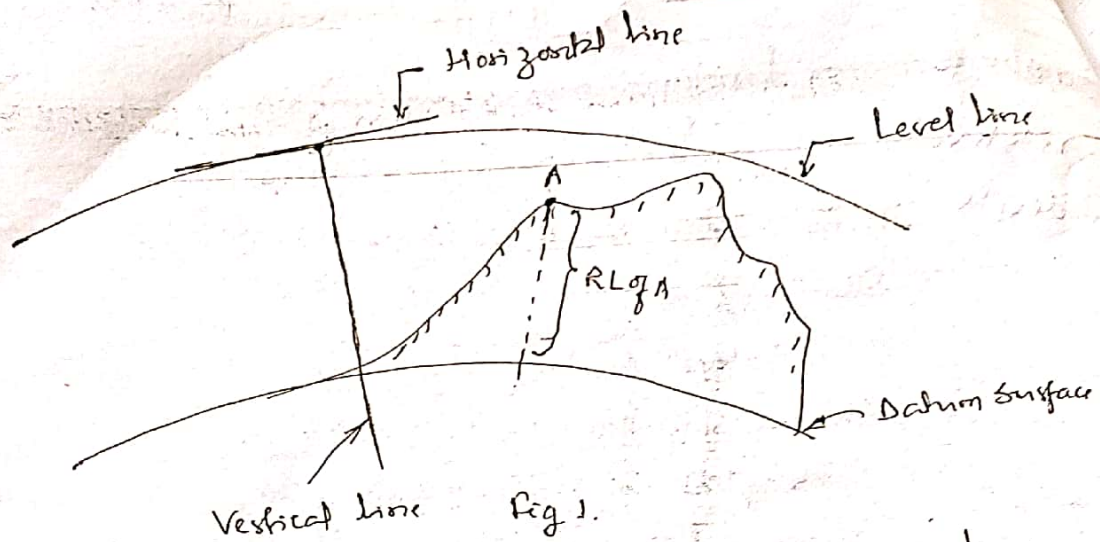 Horizontal line
Level line
A
RL of A
Datum Surface
Vertical line
Fig 1.